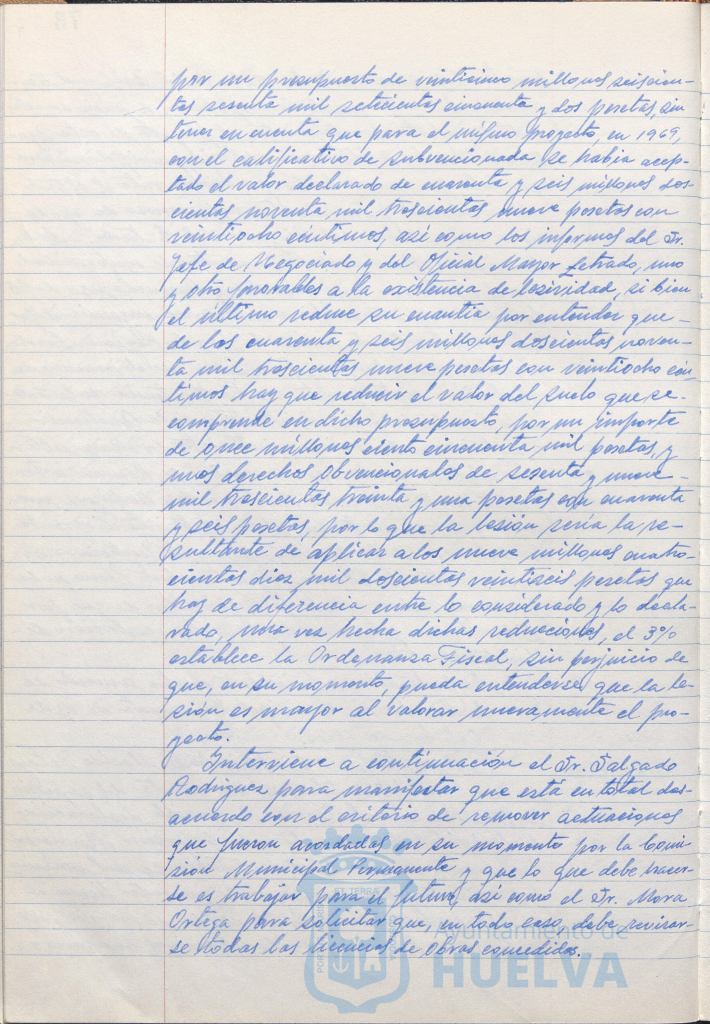 por un presupuesto de veinticinco millones seiscien-
tas sesenta mil setecientas cincuenta y dos pesetas, sin
tener en cuenta que para el mismo proyecto, en 1969,
con el calificativo de subvencionada se había acep-
tado el valor declarado de cuarenta y seis millones dos-
cientas noventa mil trescientas nueve pesetas con
veintiocho céntimos, así como los informes del Sr.
Jefe de Negociado y del Oficial Mayor Letrado, uno
y otro favorables a la existencia de lesividad, si bien
el último reduce su cuantía por entender que -
de los cuarenta y seis millones doscientas noven-
ta mil trescientas nueve pesetas con veintiocho cén-
timos hay que reducir el valor del suelo que se -
comprende en dicho presupuesto, por un importe
de once millones ciento cincuenta mil pesetas, y
unos derechos obvencionales de sesenta y nueve -
mil trescientas treinta y una pesetas con cuarenta
y seis pesetas, por lo que la lesión sería la re-
sultante de aplicar a los nueve millones cuatro-
cientas diez mil doscientas veintiseis pesetas que
hay de diferencia entre lo considerado y lo decla-
rado, una vez hecha dichas reducciones, el 3%
establece la Ordenanza Fiscal, sin perjuicio de
que, en su momento, pueda entenderse que la le-
sión es mayor al valorar nuevamente el pro-
yecto.
Interviene a continuación el Sr. Salgado
Rodríguez para manifestar que está en total des-
acuerdo con el criterio de remover actuaciones
que fueron acordadas en su momento por la Comi-
sión Municipal Permanente y que lo que debe hacer-
se es trabajar para el futuro, así como el Sr. Mora
Ortega para solicitar que, en todo caso, debe revisar-
se todas las licencias de Obras concedidas.
Ayuntamiento de
HUELVA